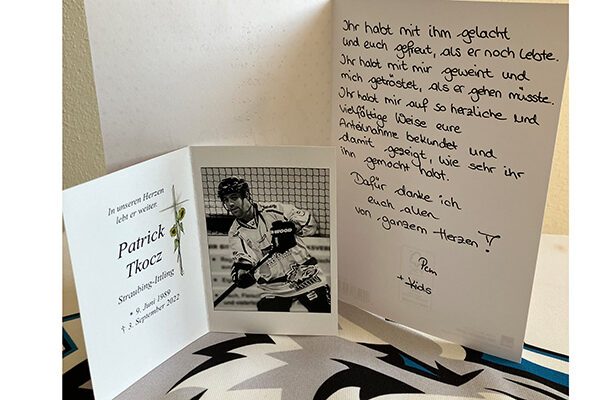 In unseren Herzen
lebt er weiter.
Patrick
Tkocz
Straubing-Ittling
* 9. Juni 1989
† 3. September 2022
WOOD
Ihr habt mit ihm gelacht
und euch gefreut, als er noch lebte.
Ihr habt mit mir geweint und
mich getröstet, als er gehen müsste.
Ihr habt mir auf so herzliche und
vielfältige Weise eure
Anteilnahme bekundet und
damit gezeigt, wie sehr ihr
ihn gemocht habt.
Dafür danke ich
euch allen
von ganzem Herzen!
+ Kids